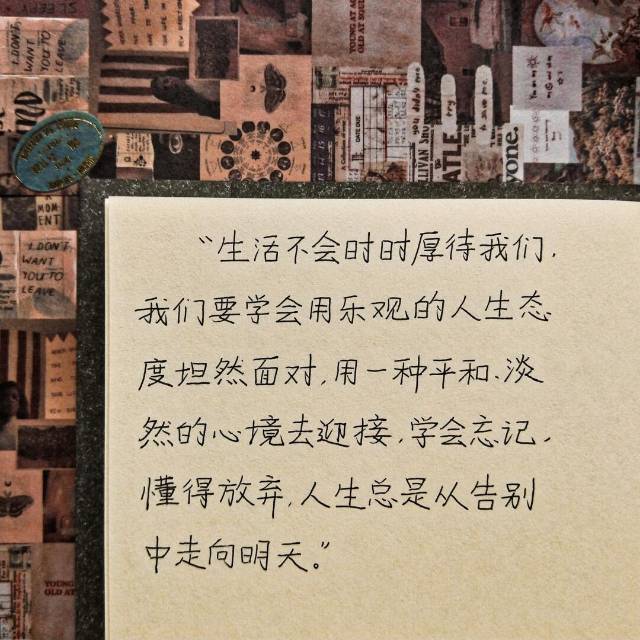 I DON'T
WANT
YOU TO
LEAVE
YOUNG AT
OLD AT
DATE DUE
you didn't
try
to save me.
yone.
MOM
ENT
I DON'T
WANT
YOU TO
LEAVE
“生活不会时时厚待我们，
我们要学会用乐观的人生态
度坦然面对，用一种平和、淡
然的心境去迎接，学会忘记，
懂得放弃，人生总是从告别
中走向明天。”
YOUNG
OLD AT